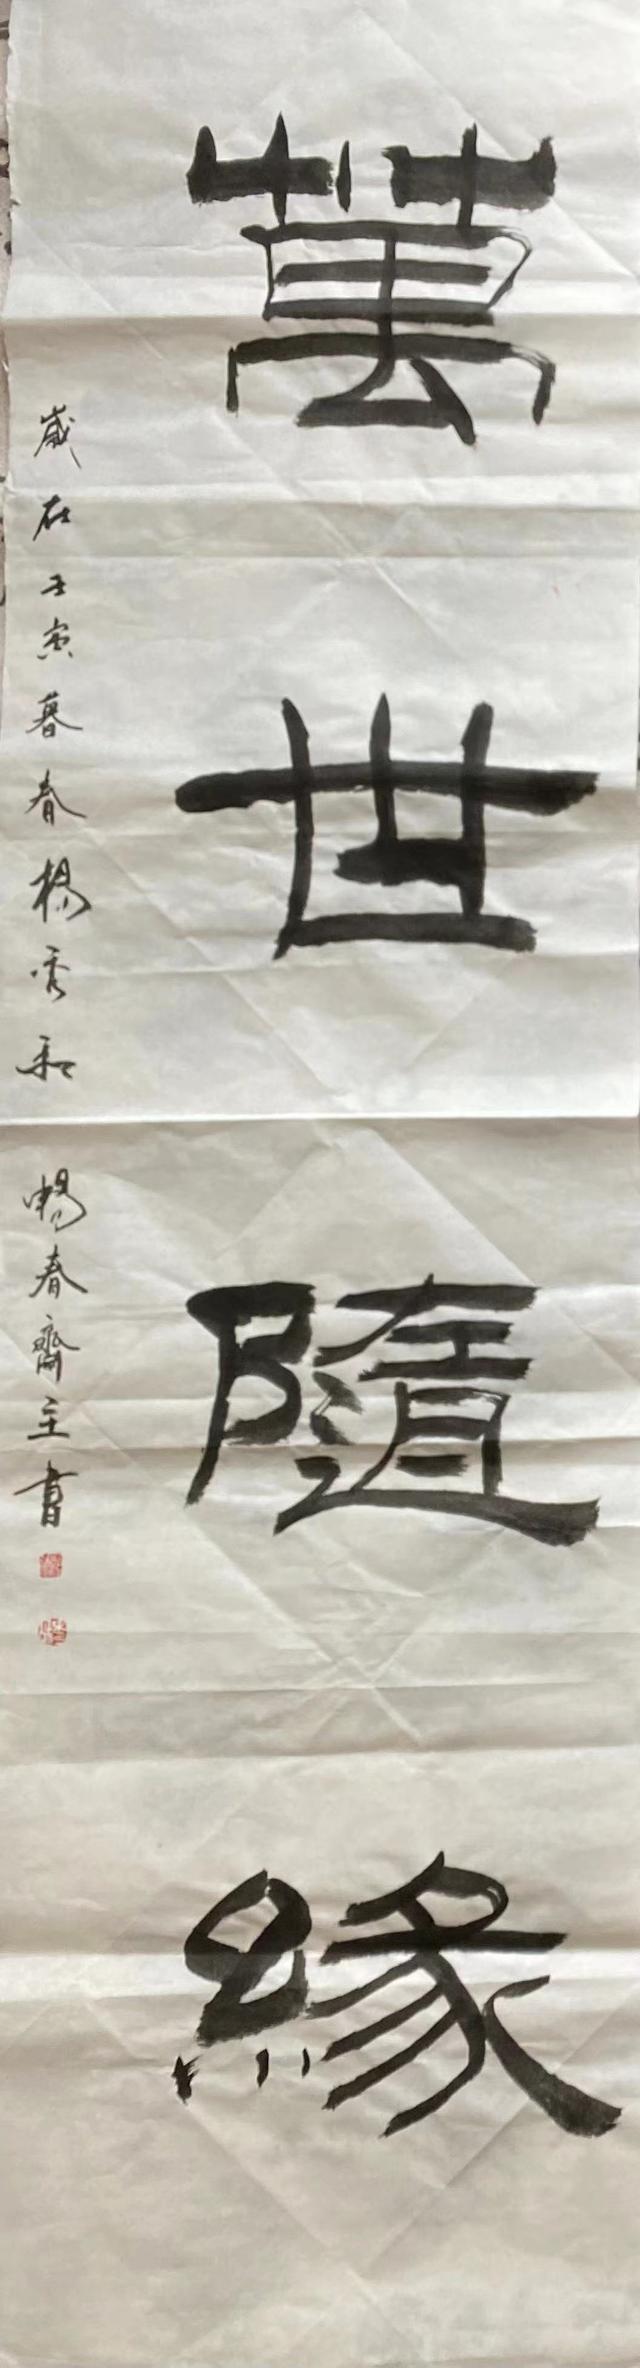 萬世隨緣
歲在壬寅暮春楊秀和 暢春齋主書